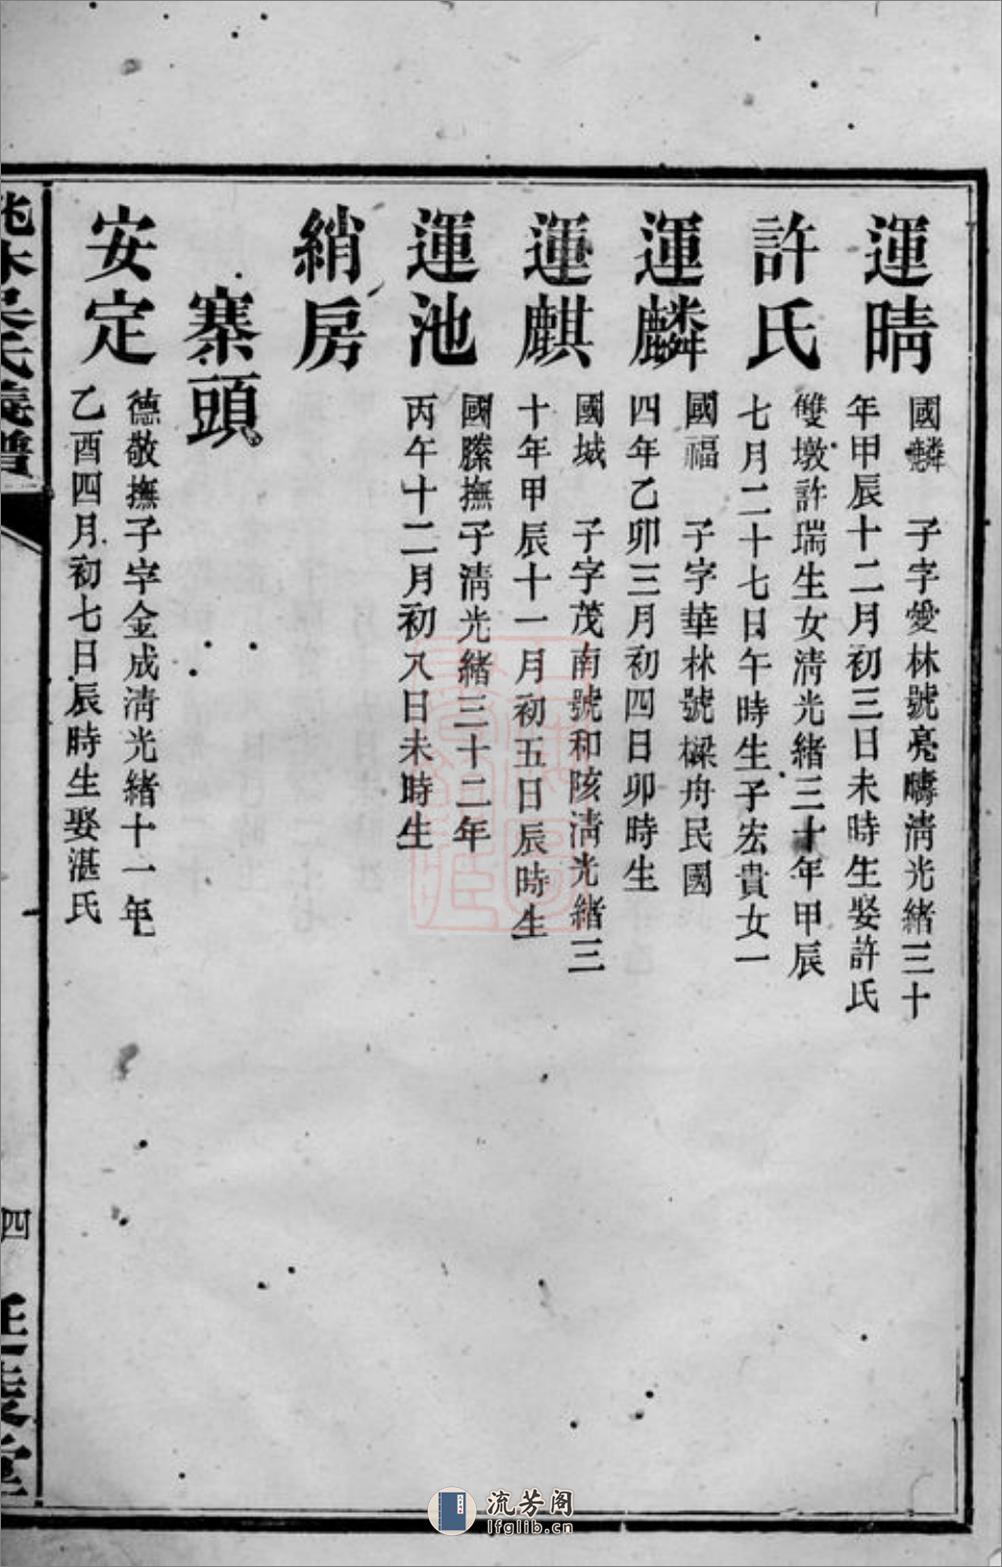 運晴
國麟 子字愛林號亮疇清光緒三十
年甲辰十二月初三日未時生娶許氏
許氏
雙墩許瑞生女清光緒三十年甲辰
七月二十七日午時生子宏貴女一
運麟
國福 子字華林號樑舟民國
四年乙卯三月初四日卯時生
運麒
國城 子字茂南號和陔清光緒三
十年甲辰十一月初五日辰時生
運池
國縢撫子清光緒三十二年
丙午十二月初八日未時生
綃房
寨頭
安定
德敬撫子字金成清光緒十一年
乙酉四月初七日辰時生娶湛氏
氏義譜
四
流芳阁
lfglib.cn